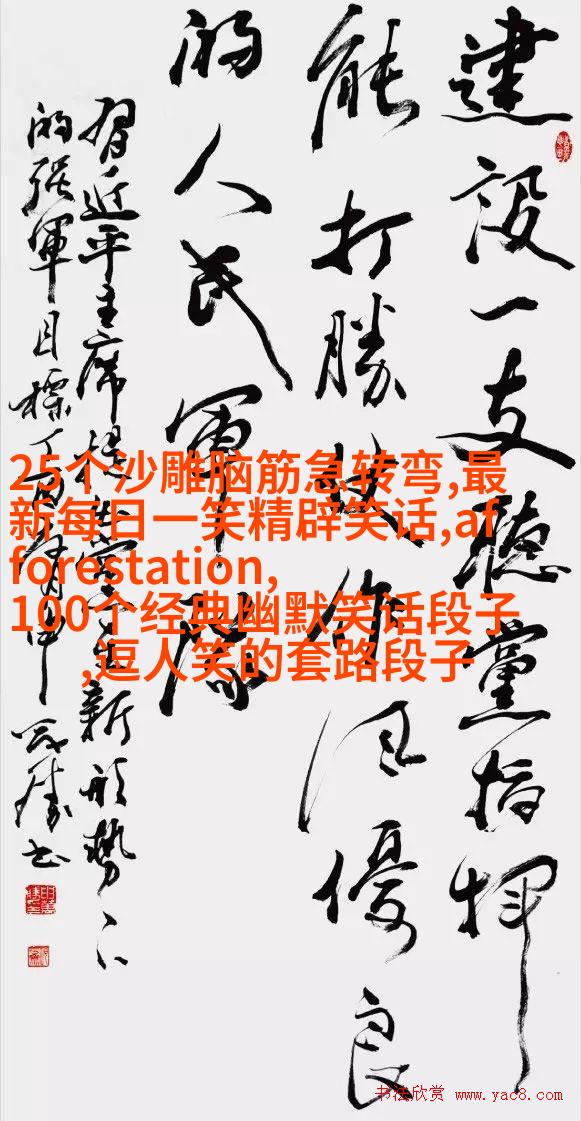 建設一支聽黨指揮
能打勝仗作風優良
的人民軍隊
習近平主席提出黨在新形勢下
的强軍目標
25个沙雕脑筋急转弯,最
新每日一笑精辟笑话,af
forestation,
100个经典幽默笑话段子
,逗人笑的套路段子
书法欣赏 www.yac8.com